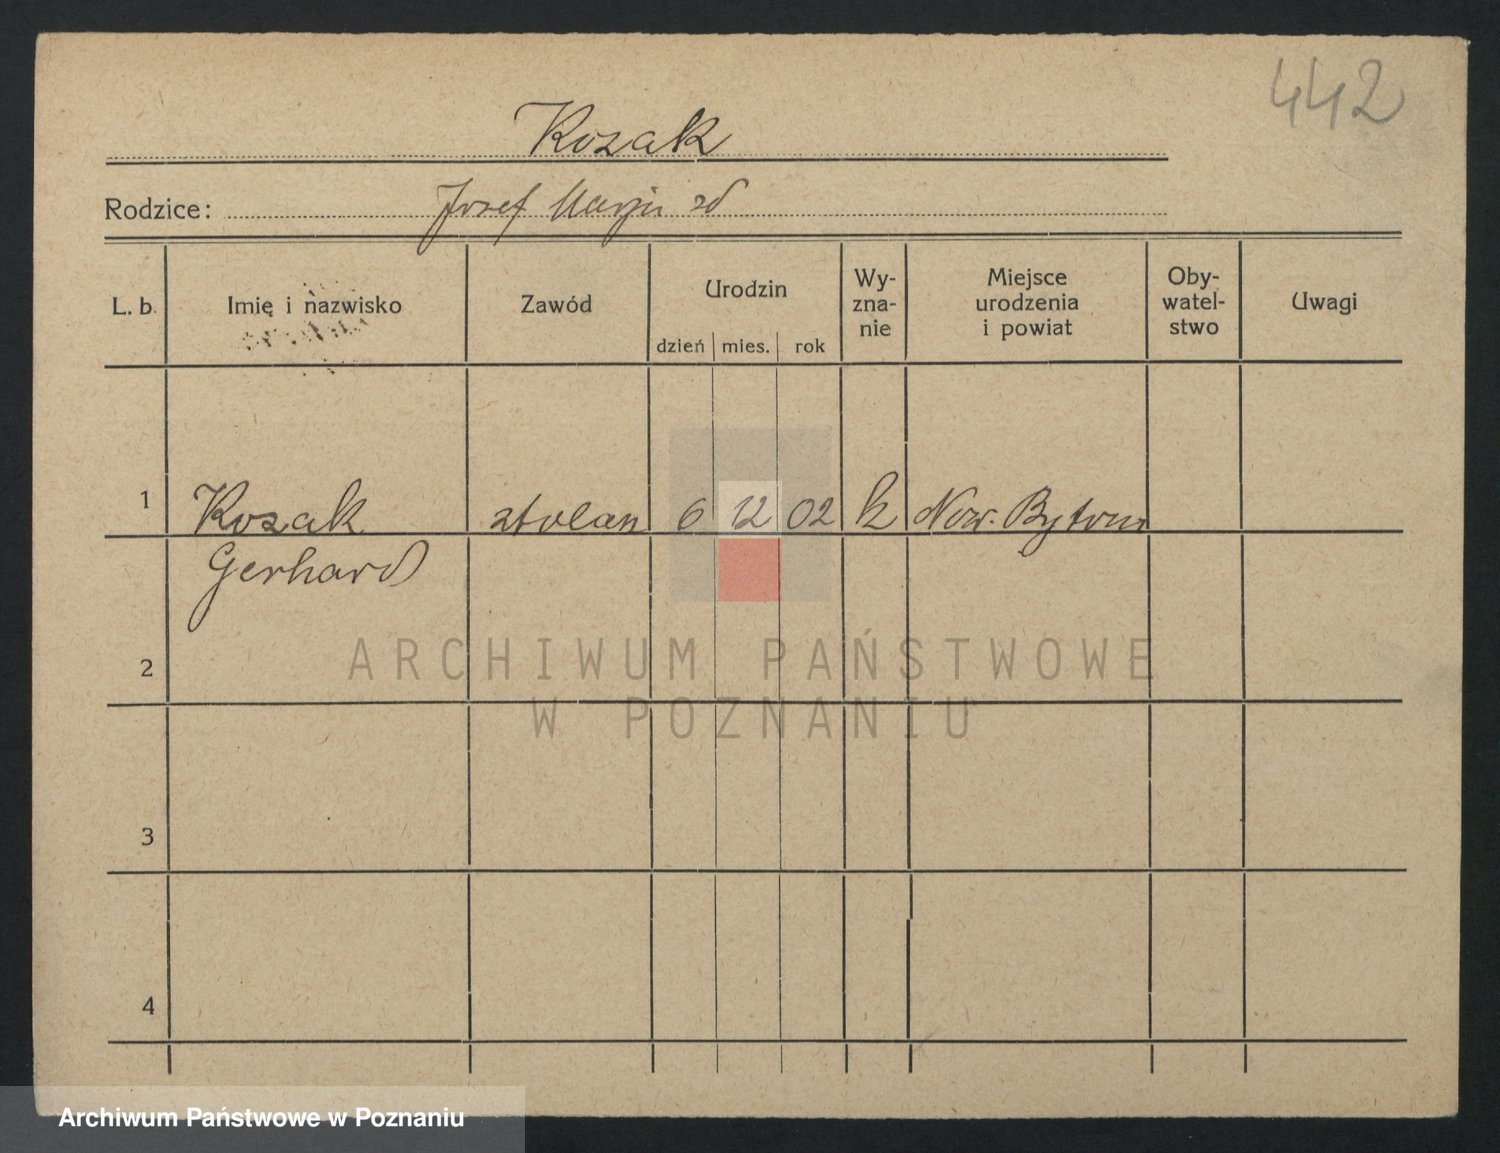 442
Kozak
Rodzice: Jozef Marja zd
L. b. Imię i nazwisko Zawód Urodzin dzień mies. rok Wy-zna-nie Miejsce urodzenia i powiat Oby-watel-stwo Uwagi
1 Kozak stolarz 6 12 02 k Now. Bytom
Gerhard
2
ARCHIWUM PAŃSTWOWE
W POZNANIU
3
4
Archiwum Państwowe w Poznaniu